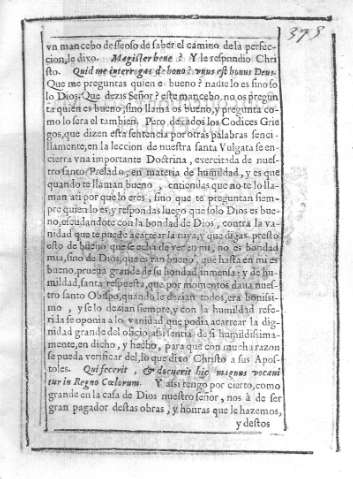 375
vn mancebo desseoso de saber el camino dela perfec-
cion, le dixo. Magister bone? Y le respondio Chri
sto. Quid me interrogas de bono? vnus est bonus Deus.
Que me preguntas quien es bueno? nadie lo es sino so
lo Dios. Que dezis Señor? este mancebo, no os pregun
ta quien es bueno, sino llama os bueno, y pregunta co
mo lo sera el tambien. Pero dexados los Codices Grie
gos, que dizen esta sentencia por otras palabras senci-
llamente, en la leccion de nuestra santa Vulgata se en-
cierra vna importante Doctrina, exercitada de nues-
tro santo Prelado, en materia de humildad, y es que
quando te llaman bueno, entiendas que no te lo lla-
man a ti por que lo eres, sino que te preguntan siem-
pre quien lo es, y respondas luego que solo Dios es bue-
no, escudandote con la bondad de Dios, contra la va-
nidad que te puede acarrear la tuya, y que digas presto
esto de bueno que se echa de ver en mi, no es bondad
mia, sino de Dios, que es tan bueno, que hasta en mi es
bueno, prueua grande de su bondad inmensa: y de hu-
mildad, santa respuesta, que por momentos daua nues-
tro santo Obispo, quando le dezian todos, era bonissi-
mo, y se lo dezian siempre, y con la humildad refe-
rida se oponia a lo vanidad que podia acarrear la dig-
nidad grande del oficio, assi sentia de si humildissima-
mente, en dicho, y hecho, para que con mucha razon
se pueda verificar del, lo que dixo Christo a sus Apos-
toles. Qui fecerit, & docuerit hic magnus vocabi
tur in Regno Cœlorum. Y assi tengo por cierto, como
grande en la casa de Dios nuestro señor, nos à de ser
gran pagador destas obras, y honras que le hazemos,
y destos